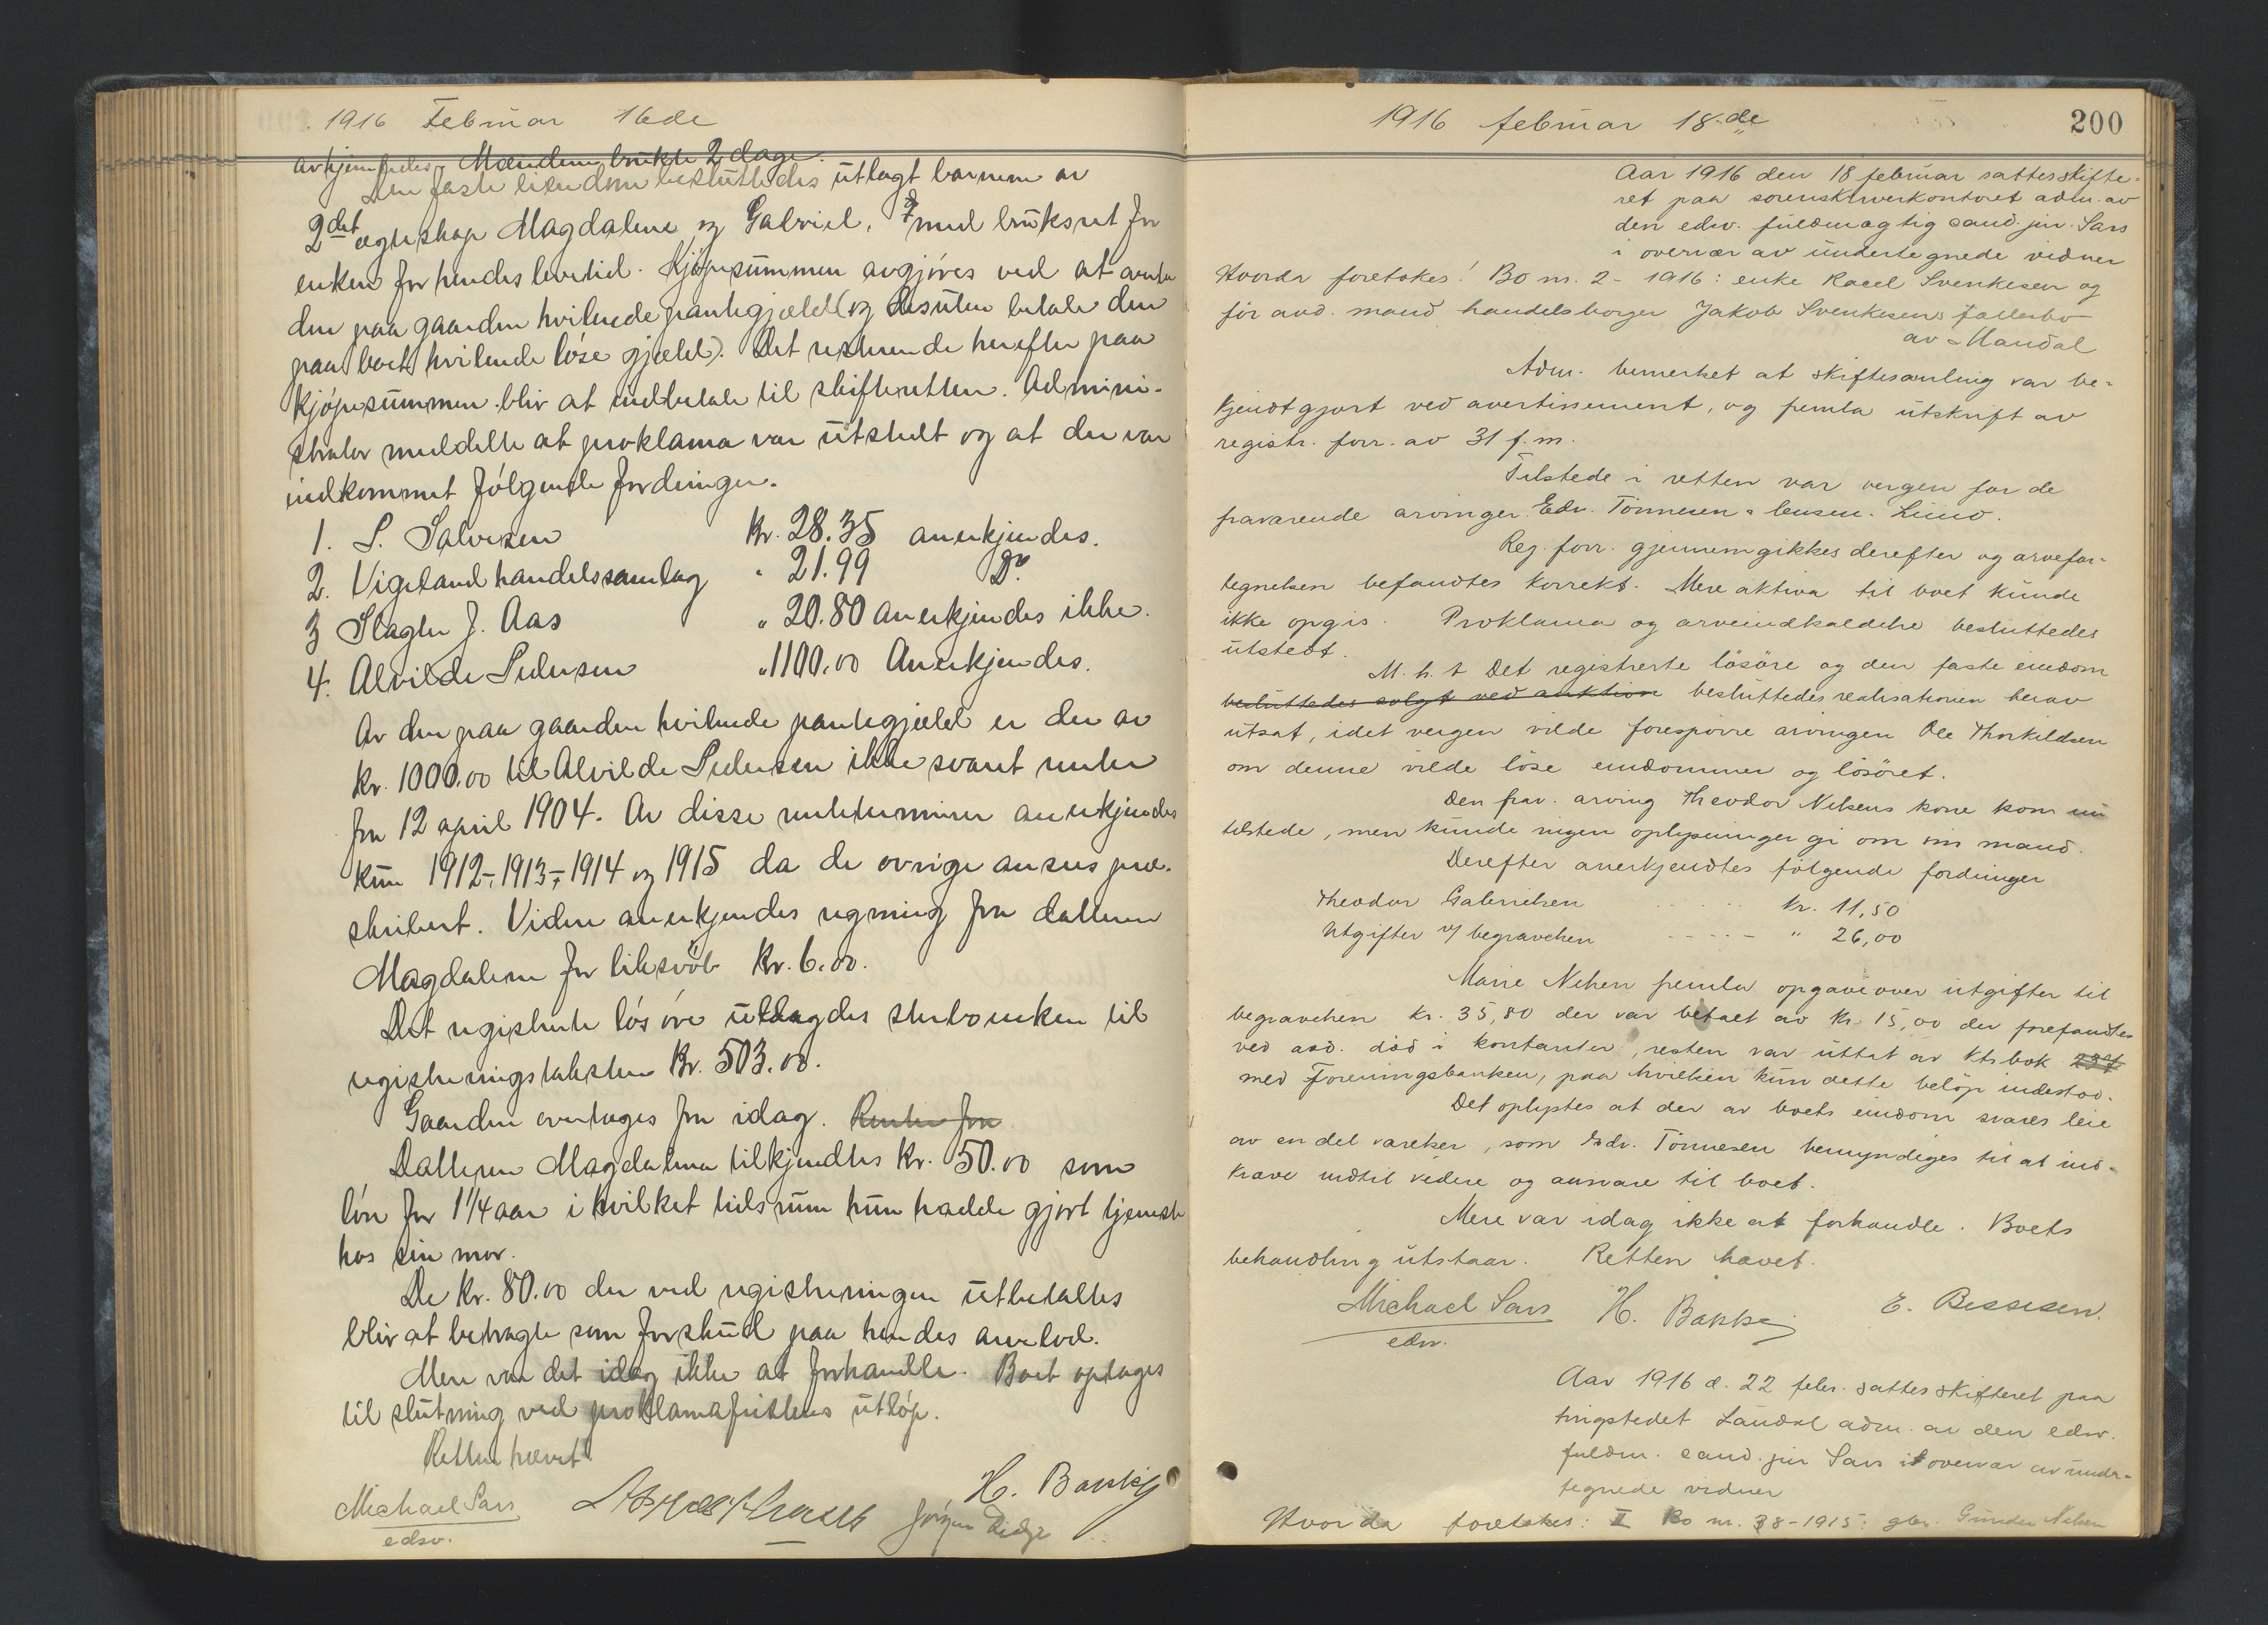 1916 Februar 16de
avhjemledes. Mændene brukte 2 dage.
Den faste eiendom besluttedes utlagt barnene av
2det egteskap Magdalene og Gabriel, med bruksret for
enken for hendes levetid. Kjøpesummen avgjøres ved at overta
den paa gaarden hvilende pantegjæld (og desuten betale den
paa boet hvilende løse gjæld). Det resterende herefter paa
kjøpesummen blir at indbetale til skifteretten. Admini-
strator meddelte at proklama var utstedt og at der var
indkommet følgende fordringer.
1. S. Salvesen Kr. 28.35 anerkjendes.
2. Vigeland handelssamlag " 21.99 Do
3 Slagter J. Aas " 20.80 anerkjendes ikke.
4. Alvilde Pedersen " 1100.00 Anerkjendes.
Av den paa gaarden hvilende pantegjæld er der av
kr. 1000.00 til Alvilde Pedersen ikke svaret renter
fra 12 april 1904. Av disse renteterminer anerkjendes
kun 1912-, 1913-, 1914 og 1915 da de øvrige ansees præ-
skribert. Videre anerkjendes regning fra datteren
Magdalene for liksvøb Kr. 6.00.
Det registrerte løsøre utlægdes sterboenken til
registreringstaksten Kr. 503.00.
Gaarden overtages fra idag. Renter fra
Datteren Magdalena tilkjendtes Kr. 50.00 som
løn for 1 1/4 aar i hvilket tidsrum hun hadde gjort tjeneste
hos sin mor.
De Kr. 80.00 der ved registreringen utbetaltes
blir at betragte som forskud paa hendes arvelod.
Mere var det idag ikke at forhandle. Boet optages
til slutning ved proklamafristens utløp.
Retten hævet
Michael Sars H. Bakke
edsv. Jørgen
1916 februar 18de 200
Aar 1916 den 18 februar sattes skifte-
ret paa sorenskriverkontoret adm. av
den edsv. fuldmægtig cand. jur. Sars
i overvær av undertegnede vidner
Hvorda foretokes: Bo nr. 2 - 1916: enke Racel Svenkesen og
før avd. mand handelsborger Jakob Svenkesens fællesbo
av Mandal
Adm. bemerket at skiftesamling var be-
kjendtgjort ved avertissement, og fremla utskrift av
registr. forr. av 31 f.m.
Tilstede i retten var vergen for de
fraværende arvinger Edv. Tønnesen & Lund.
Reg. forr. gjennemgikkes derefter og arvefor-
tegnelsen befandtes korrekt. Mere aktiva til boet kunde
ikke opgis. Proklama og arveindkaldelse besluttedes
utstedt.
M. h. t Det registrerte løsøre og den faste eiendom
besluttedes solgt ved auktion besluttedes realisationen herav
utsat, idet vergen vilde forespørre arvingen Ole Thorkildsen
om denne vilde løse eiendommen og løsøret.
Den frav. arving Theodor Nilsens kone kom nu
tilstede, men kunde ingen oplysninger gi om sin mand.
Derefter anerkjendtes følgende fordringer
Theodor Gabrielsen . . . . . kr. 11,50
Utgifter v/ begravelsen - - - - - " 26,00
Marie Nilsen fremla opgave over utgifter til
begravelsen kr. 35,80 der var betalt av kr. 15,00 der forefandtes
ved avd. død i kontanter, resten var uttat av ktr. bok 237
med Foreningsbanken, paa hvilken kun dette beløp indestod.
Det oplystes at der av boets eiendom svares leie
av en del værelser, som Edv. Tønnesen bemyndiges til at ind-
kræve indtil videre og ansvare til boet.
Mere var idag ikke at forhandle. Boets
behandling utstaar. Retten hævet.
Michael Sars H. Bakke E. Bessesen.
edsv.
Aar 1916 d. 22 febr. sattes skifteret paa
tingstedet Laudal adm. av den edsv.
fuldm. cand. jur Sars i overvær av under-
tegnede vidner
Hvorda foretokes: I Bo nr. 38-1915: gbr. Gunder Nilsen